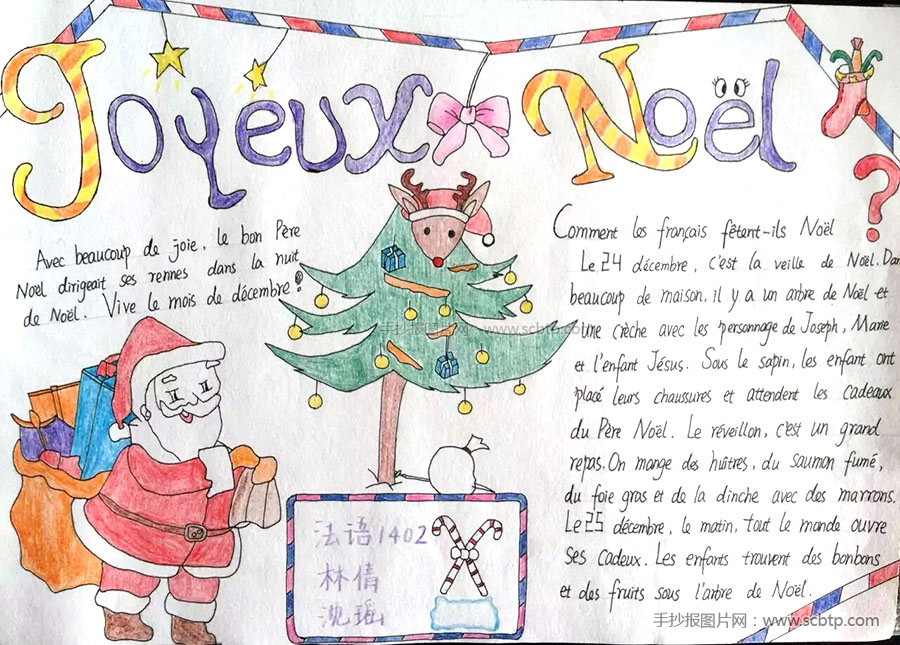 Joyeux Noël
Avec beaucoup de joie, le bon Père
Noël dirigeait ses rennes dans la nuit
de Noël. Vive le mois de décembre!
?
Comment les français fêtent-ils Noël
Le 24 décembre, c'est la veille de Noël. Dan
beaucoup de maison, il y a un arbre de Noël et
une crèche avec les personnage de Joseph, Marie
et l'enfant Jésus. Sous le sapin, les enfant ont
placé leurs chaussures et attendent les cadeaux
du Père Noël. Le réveillon, c'est un grand
repas. On mange des huîtres, du saumon fumé,
du foie gras et de la dinche avec des marrons.
Le 25 décembre, le matin, tout le monde ouvre
ses cadeux. Les enfants trouvent des bonbons
et des fruits sous l'arbre de Noël.
手抄报图片网：www.scbtp.com
法语1402
林倩
沈瑶
手抄报图片网：www.scbtp.com